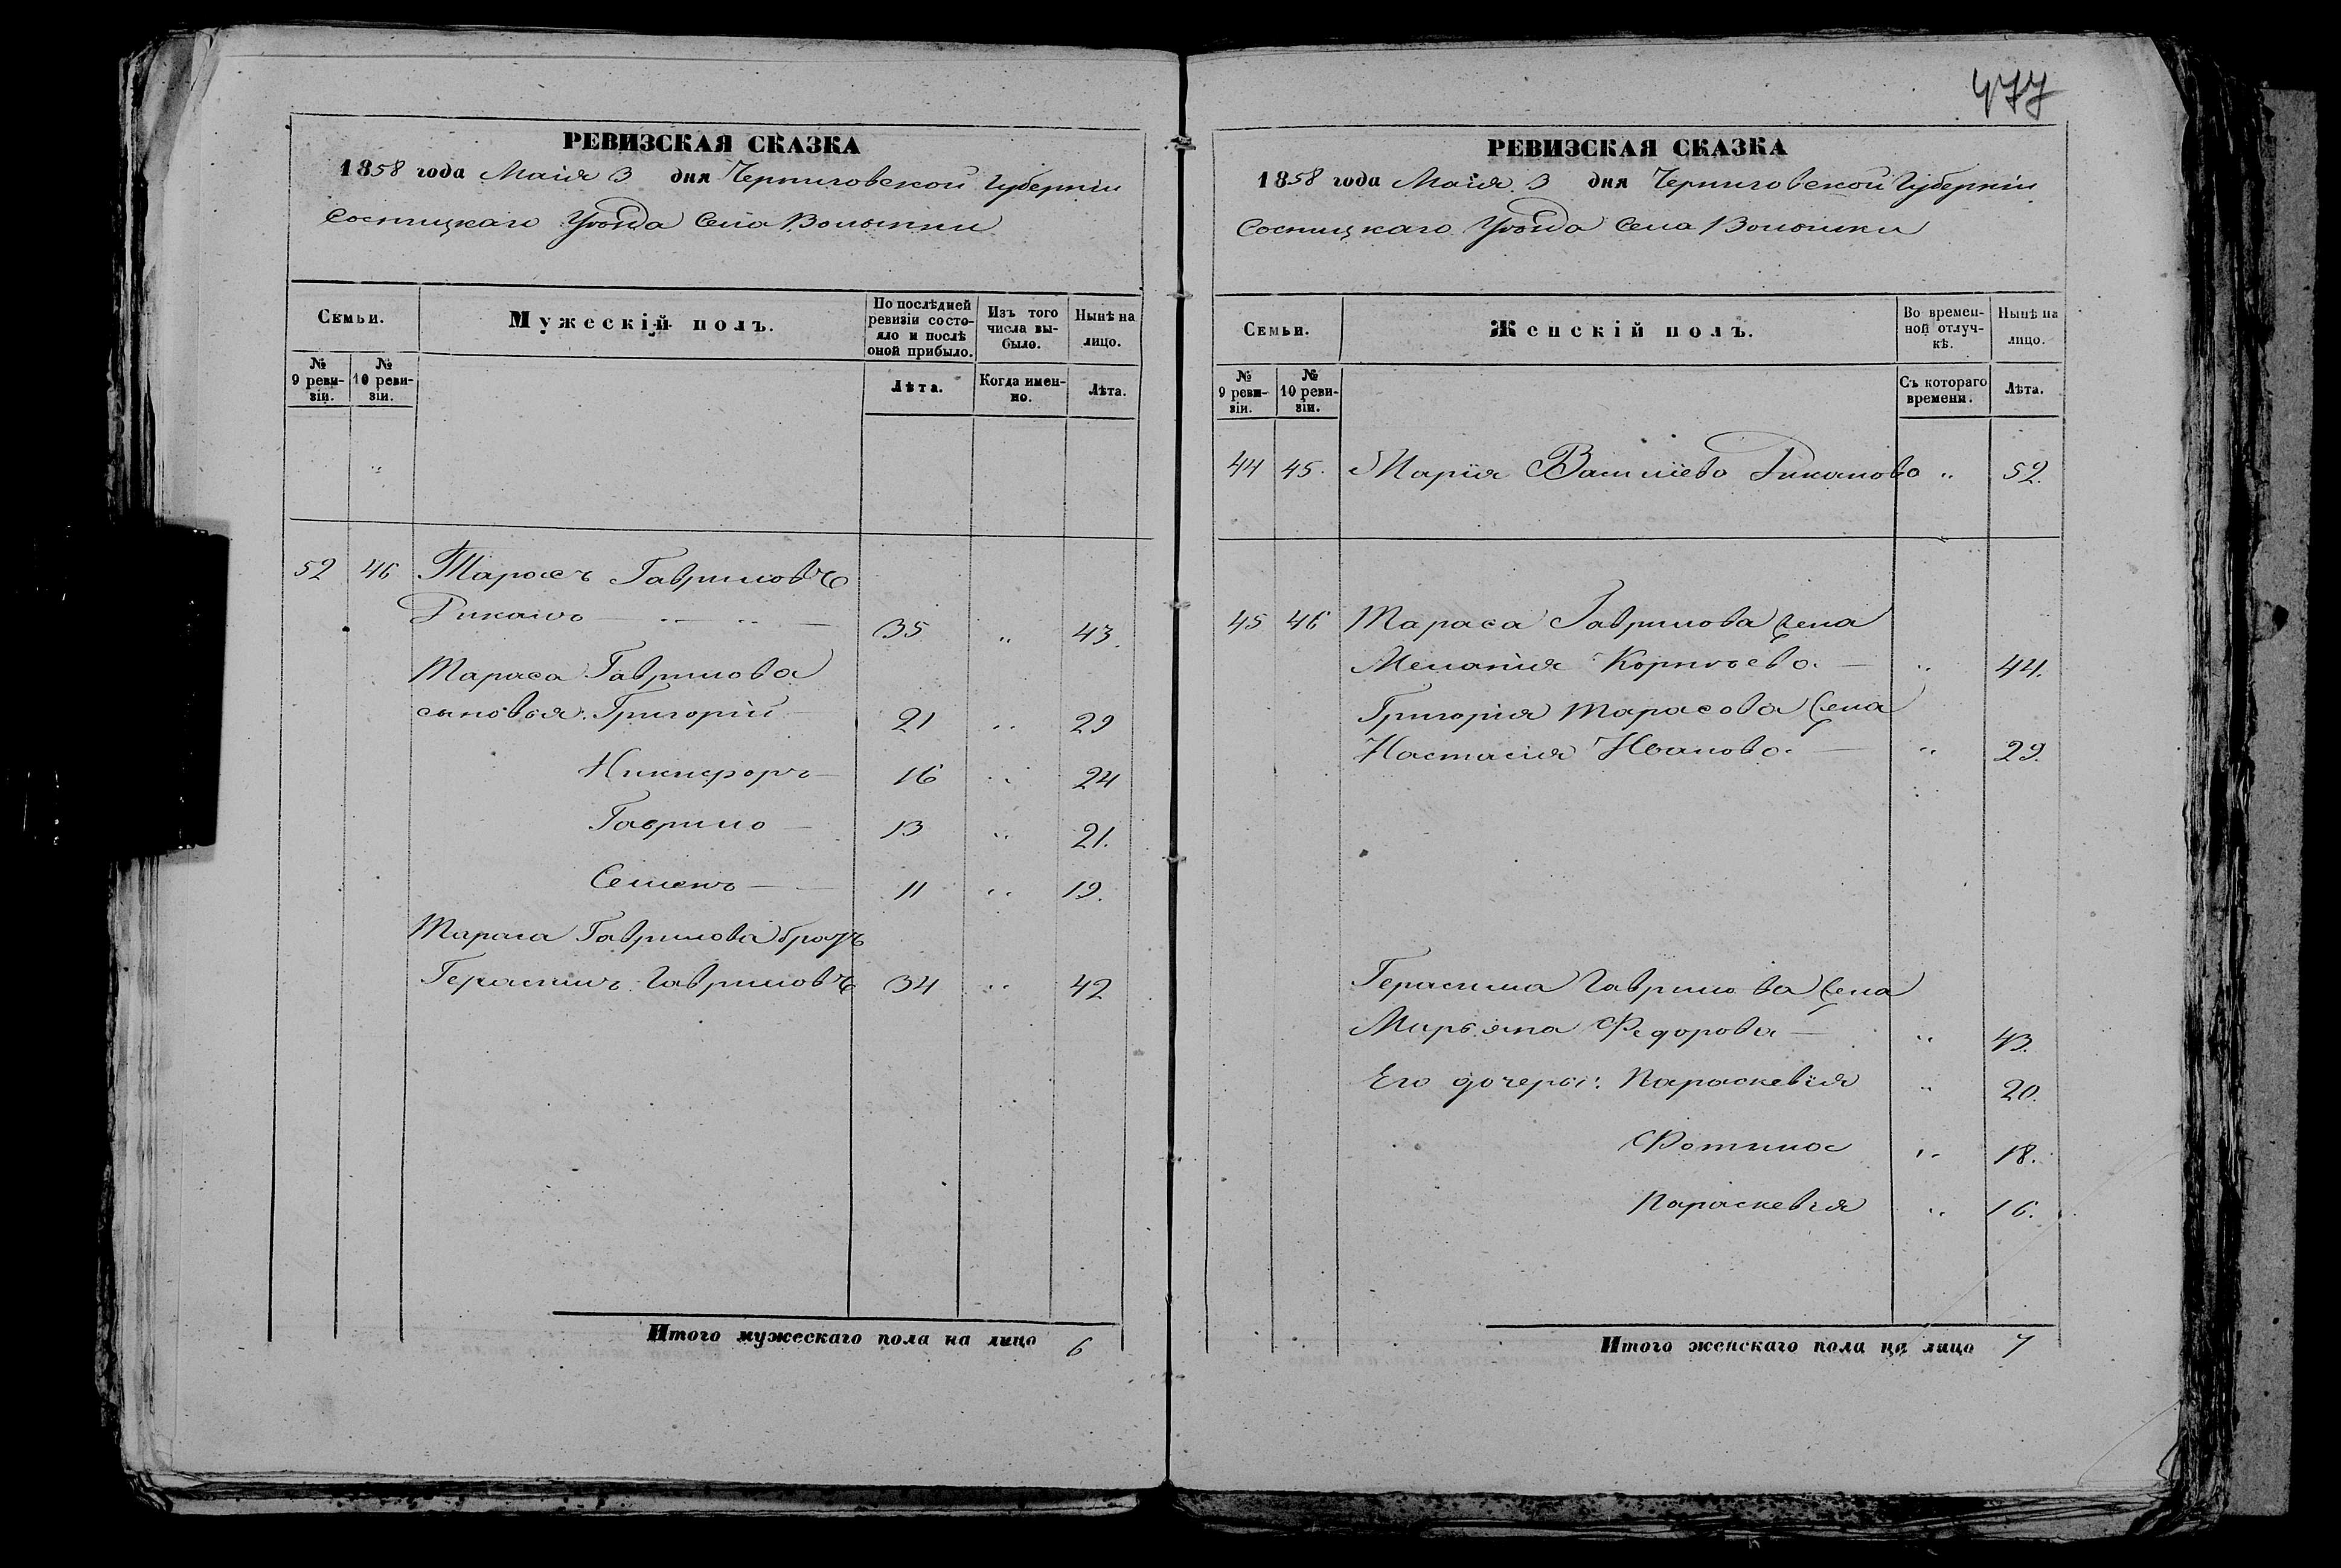 477
РЕВИЗСКАЯ СКАЗКА
1858 года Маія 3 дня Черниговской Губерніи
Сосницкаго Уѣзда Села Волынки
Семьи.
Мужескій полъ.
По послѣдней ревизіи состояло и послѣ оной прибыло.
Изъ того числа выбыло.
Нынѣ на лицо.
№ 9 ревизіи.
№ 10 ревизіи.
Лѣта.
Когда именно.
Лѣта.
52 46 Тарасъ Гавриловъ
Рикало 35 " 43.
Тараса Гаврилова
сыновья: Григорій 21 " 29
Никифоръ 16 " 24
Гаврило 13 " 21.
Семенъ 11 " 19.
Тараса Гаврилова братъ
Герасимъ Гавриловъ 34 " 42
Итого мужескаго пола на лицо 6
РЕВИЗСКАЯ СКАЗКА
1858 года Маія 3 дня Черниговской Губерніи
Сосницкаго Уѣзда Села Волынки
Семьи.
Женскій полъ.
Во временной отлучкѣ.
Нынѣ на лицо.
№ 9 ревизіи.
№ 10 ревизіи.
Съ котораго времени.
Лѣта.
44 45. Марія Василіева Рикалова " 52.
45 46 Тараса Гаврилова жена
Меланія Корнѣева " 44.
Григорія Тарасова жена
Настасія Иванова " 29.
Герасима Гаврилова жена
Марьяна Федорова " 43.
Его дочеры: Параскевія " 20.
Фотина " 18.
Параскевія " 16.
Итого женскаго пола на лицо 7